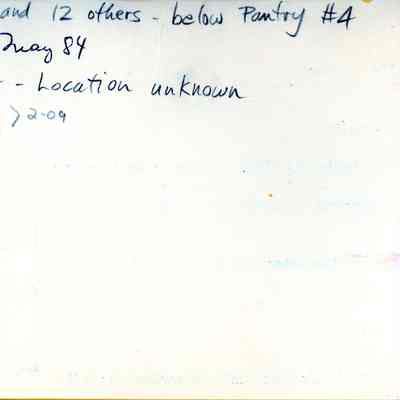 and 12 others - below Pantry #4
May 84
- - Location unknown
2-09